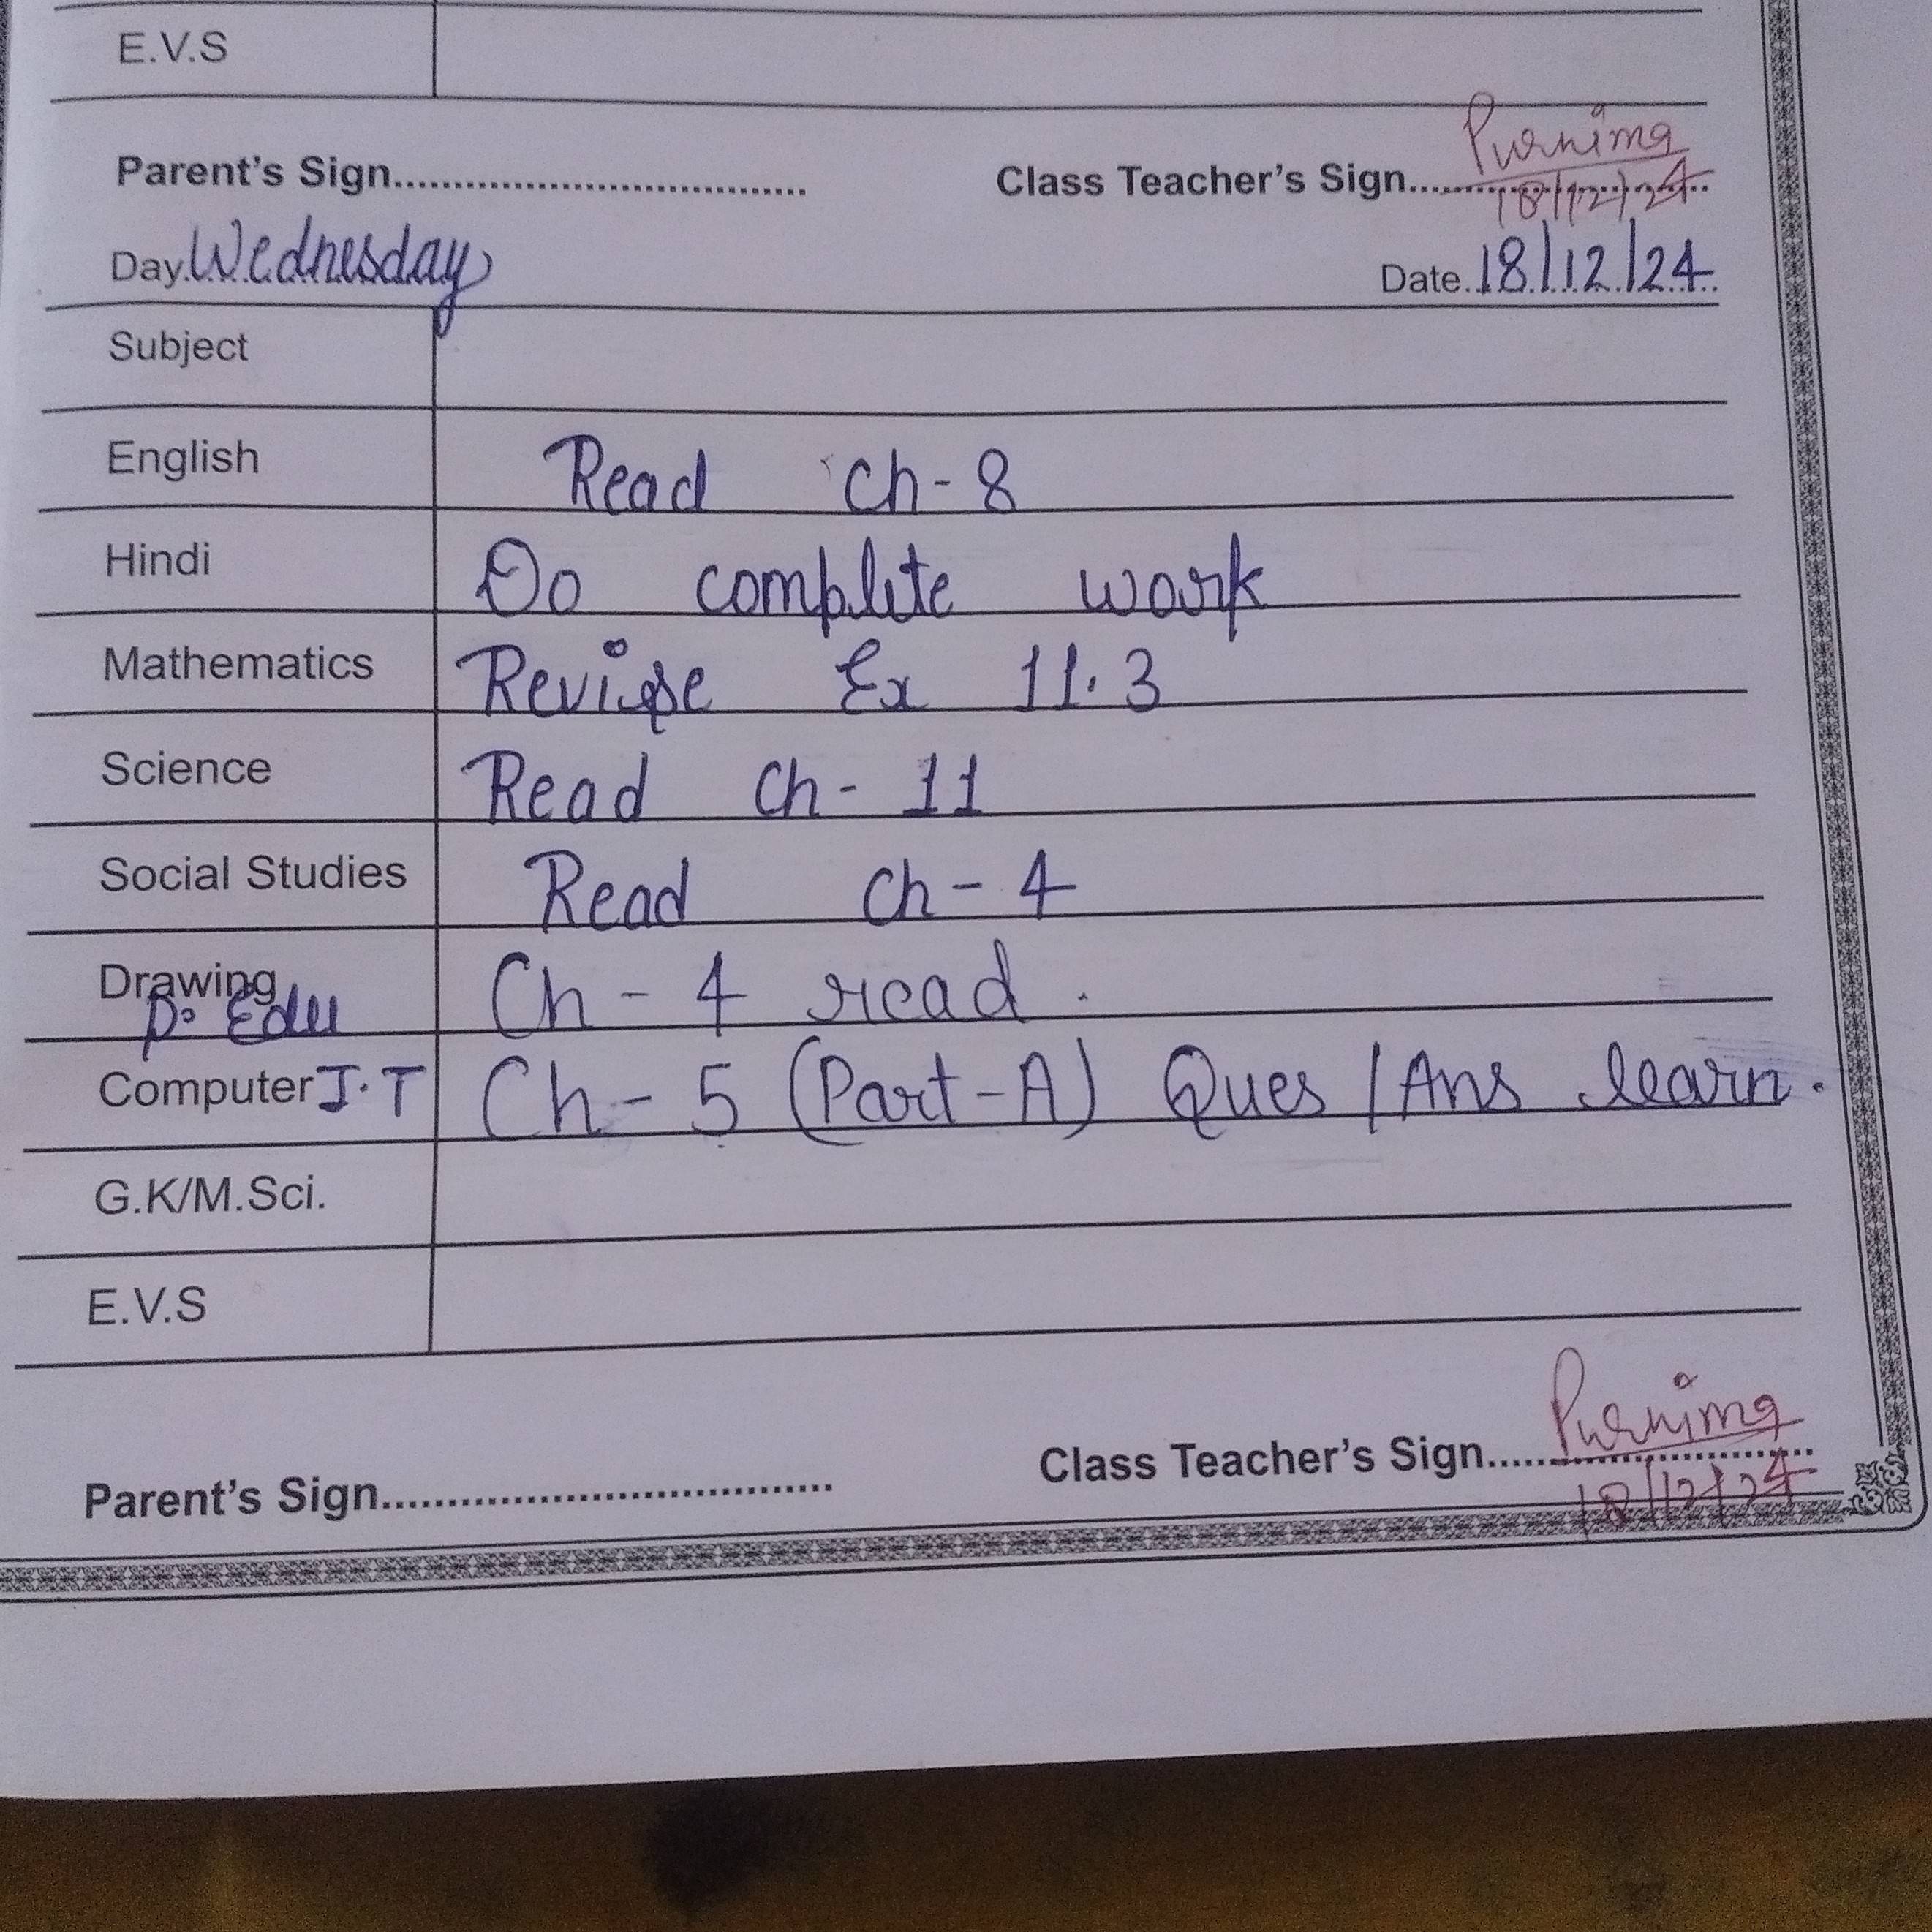 E.V.S
Parent's Sign.................................. Class Teacher's Sign.... Purnima
18/12/24
Day Wednesday Date 18/12/24
Subject
English Read Ch-8
Hindi Do complete work
Mathematics Revise Ex 11.3
Science Read Ch-11
Social Studies Read Ch-4
Drawing Ch-4 read.
P. Edu
Computer I.T Ch-5 (Part-A) Ques/Ans learn.
G.K/M.Sci.
E.V.S
Parent's Sign.................................. Class Teacher's Sign.... Purnima
18/12/24